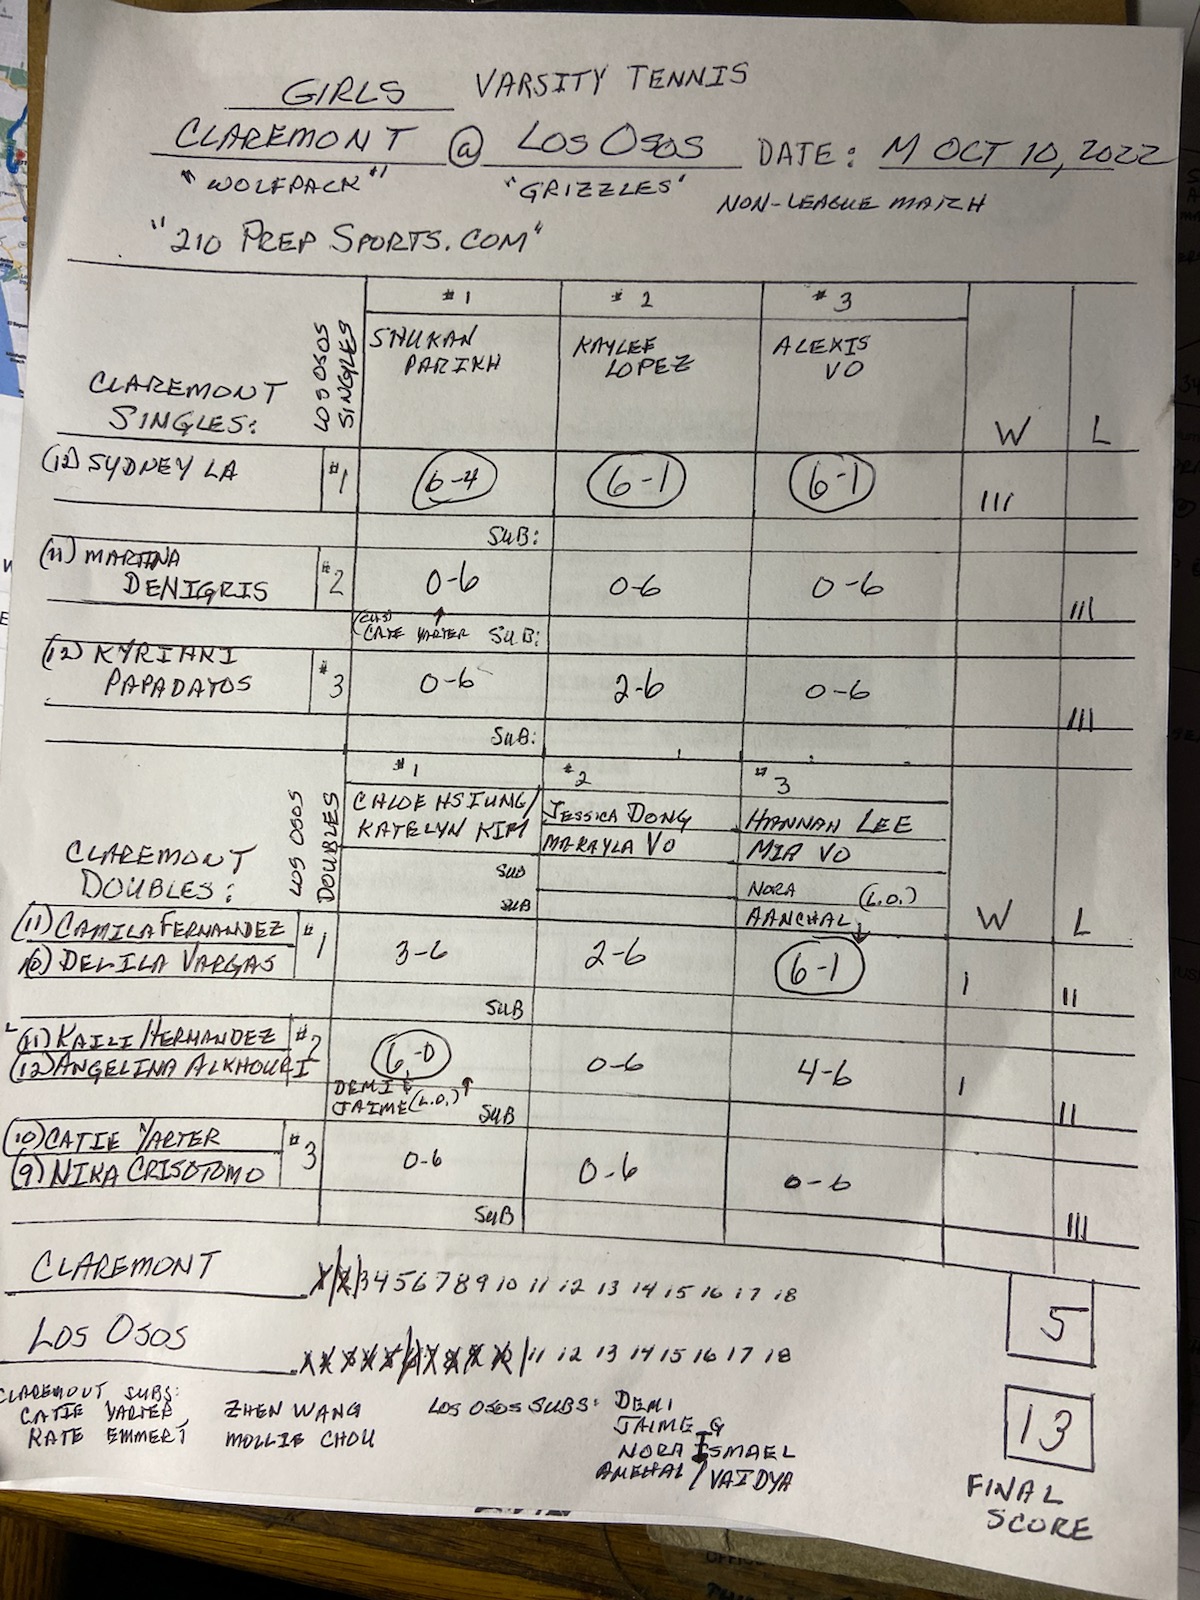 GIRLS VARSITY TENNIS
CLAREMONT @ LOS OSOS DATE: M OCT 10, 2022
"WOLFPACK" "GRIZZLES" NON-LEAGUE MATCH
"210 PREP SPORTS.COM"
#1 #2 #3
CLAREMONT SINGLES: LOS OSOS SINGLES SHUKAN PARIKH KAYLEE LOPEZ ALEXIS VO W L
(12) SYDNEY LA #1 6-4 6-1 6-1 III
SUB:
(11) MARTINA DENIGRIS #2 0-6 0-6 0-6 III
(CHS) CATE YARTER SUB:
(12) KYRIAKI PAPADATOS #3 0-6 2-6 0-6 III
SUB:
#1 #2 #3
CLAREMONT DOUBLES: LOS OSOS DOUBLES CHLOE HSIUNG/ KATELYN KIM JESSICA DONG MAKAYLA VO HANNAH LEE MIA VO W L
SUB NORA (L.O.)
SUB AANCHAL
(11) CAMILA FERNANDEZ #1 3-6 2-6 6-1 I II
(10) DELILA VARGAS
SUB
(11) KAILI HERNANDEZ #2 6-0 0-6 4-6 I II
(12) ANGELINA ALKHOURI
DEMI &
JAIME (L.O.) SUB
(10) CATIE YARTER #3 0-6 0-6 0-6 III
(9) NIKA CRISOTOMO
SUB
CLAREMONT 1 2 3 4 5 6 7 8 9 10 11 12 13 14 15 16 17 18 5
LOS OSOS 1 2 3 4 5 6 7 8 9 10 11 12 13 14 15 16 17 18 13
CLAREMONT SUBS: LOS OSOS SUBS: DEMI
CATIE YARTER ZHEN WANG JAIME G
KATE EMMERT MOLLIE CHOU NORA ISMAEL
VAIDYA
FINAL SCORE